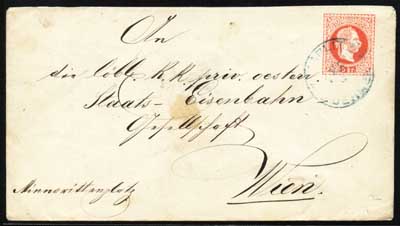 An
die löbl. K. K. priv. oesterr.
Staats-Eisenbahn-
Gesellschaft
Wien.
Minoritenplatz